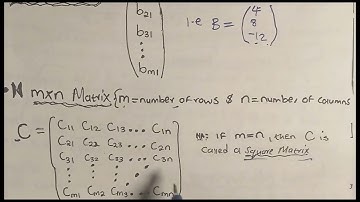 b21
b31
bm1
i.e B = (4 8 -12)
m×n Matrix {m=number of rows & n=number of columns
C = C11 C12 C13 ... C1n
C21 C22 C23 ... C2n
C31 C32 C33 ... C3n
Cm1 Cm2 Cm3 ... Cmn
If m=n, then C is
called a Square Matrix
3